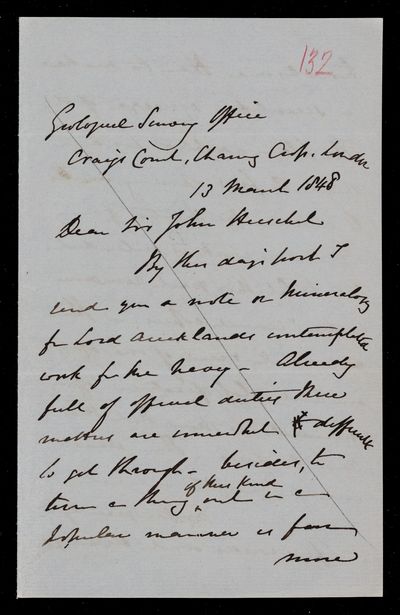 132
Geological Survey Office
Craigs Court, Charing Cross, London
13 March 1848
Dear Sir John Herschel
By this days post I
send you a note on Mineralogy
for Lord Aucklands contemplated
work for the Navy – Already
full of official duties these
matters are somewhat difficult
to get through – besides, to
turn a thing of this kind out in a
popular manner is far
more